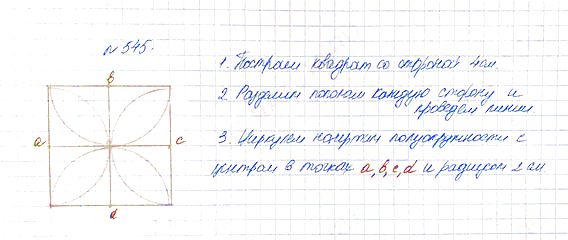 № 545.
b
a
c
d
1. Построим квадрат со стороной 4 см
2. Разделим пополам каждую сторону и
проведем линии
3. Циркулем начертим полуокружности с
центром в точках a, b, c, d и радиусом 2 см